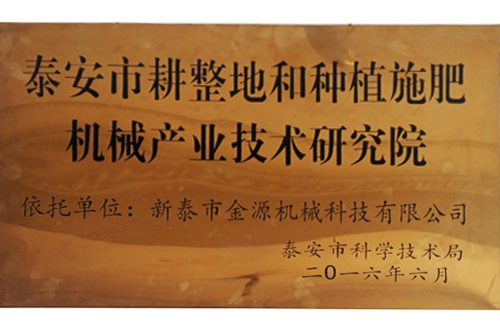 泰安市耕整地和种植施肥
机械产业技术研究院
依托单位：新泰市金源机械科技有限公司
泰安市科学技术局
二〇一六年六月